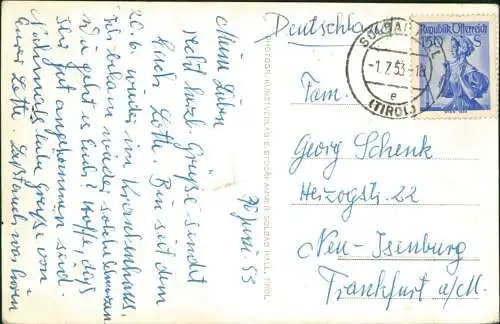 30 Juni. 53
Meine Lieben
recht herzl. Grüße sendet
Euch Lotte. Bin seit dem
26.6. wieder im Krankenhaus.
Ich bekam wieder solche Schmerzen.
Wie geht es Euch? Hoffe, dass
Ihr gut angekommen seid.
Nochmals liebe Grüße von
Eurer Lotte.
Deutschland
Fam.
Georg Schenk
Herzogstr. 22
Neu-Isenburg
Frankfurt a/M.
Republik Österreich
1.50 S
SOLBAD HALL
-1.7.53-18
e
(TIROL)